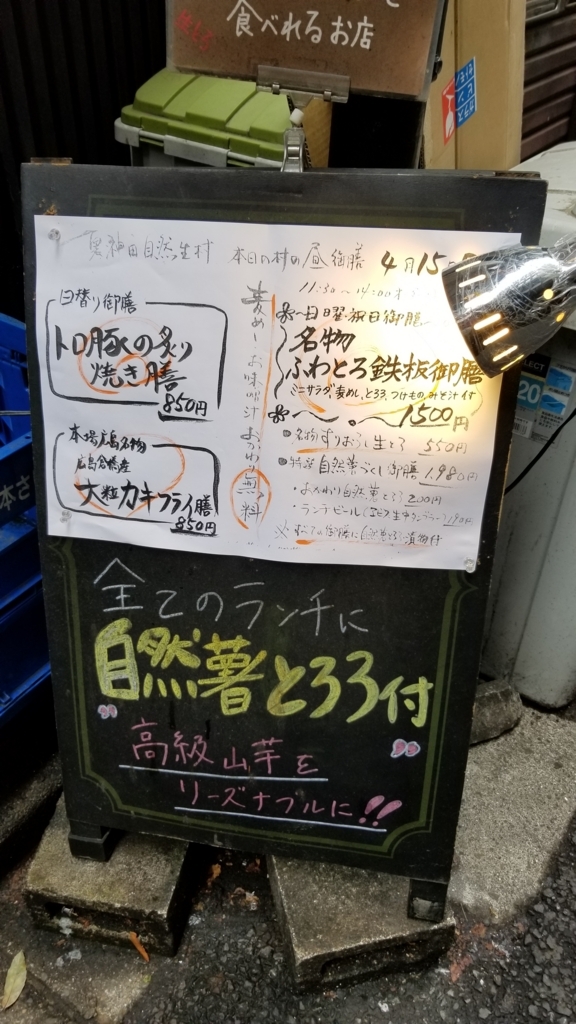 食べれるお店
本日の村の昼御膳 4月15
11:30〜14:00
日替り御膳
トロ豚の炙り
焼き膳
850円
本場広島名物
広島倉橋産
大粒カキフライ膳
850円
麦めし お味噌汁 おかわり無料
日曜・祝日御膳
名物
ふわとろ鉄板御膳
ミニサラダ、麦めし、とろろ、つけもの、みそ汁付
1500円
名物すりおろし生とろ 550円
特選 自然薯づくし御膳 1,980円
・おかわり自然薯とろろ 200円
ランチビール
※すべての御膳に自然薯とろろ漬物付
全てのランチに
自然薯とろろ付
高級山芋を
リーズナブルに!!